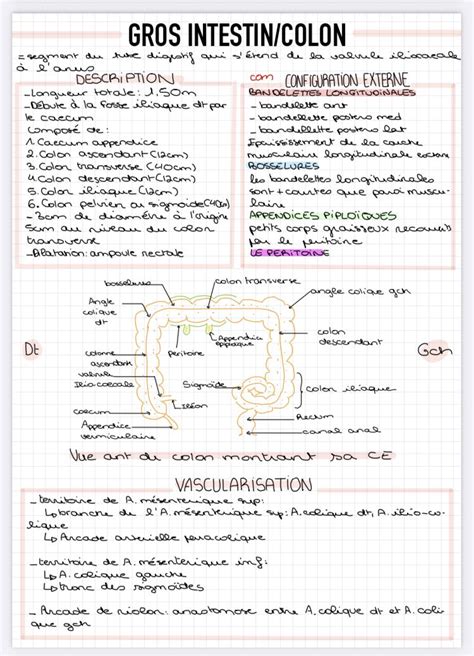 GROS INTESTIN/COLON
= segment du tube digestif qui s'étend de la valvule iliocaecale
à l'anus
DESCRIPTION
- Longueur totale: 1.50m
- Débute à la fosse iliaque dt par
le caecum
Composé de:
1. Caecum appendice
2. Colon ascendant (12cm)
3. Colon transverse (40cm)
4. Colon descendant (12cm)
5. Colon iliaque (12cm)
6. Colon pelvien ou sigmoide (40cm)
- 7cm de diamètre à l'origine
5cm au niveau du colon
transverse
- Dilatation: ampoule rectale
CONFIGURATION EXTERNE
BANDELETTES LONGITUDINALES
- bandelette ant
- bandelette postero med
- bandelette postero lat
Epaississement de la couche
musculaire longitudinale externe
BOSSELURES
les bandelettes longitudinales
sont + courtes que paroi muscu-
laire
APPENDICES PIPLOÏQUES
petits corps graisseux recouverts
par le péritoine
LE PERITOINE
bosselures
colon transverse
Angle
colique
dt
angle colique gch
Appendice
épiploique
peritoine
colon
descendant
Dt
Gch
colonne
ascendant
valvule
Ilio-caecale
Sigmoïde
colon iliaque
caecum
Iléon
Rectum
Appendice
vermiculaire
canal anal
Vue ant du colon montrant sa CE
VASCULARISATION
- territoire de A. mésenterique sup:
↳ branche de l'A. mésenterique sup: A. colique dt, A. ilio-co-
lique
↳ Arcade arterielle paracolique
- territoire de A. mésenterique inf:
↳ A. colique gauche
↳ tronc des sigmoïdes
- Arcade de riolon: anastomose entre A. colique dt et A. coli
que gch